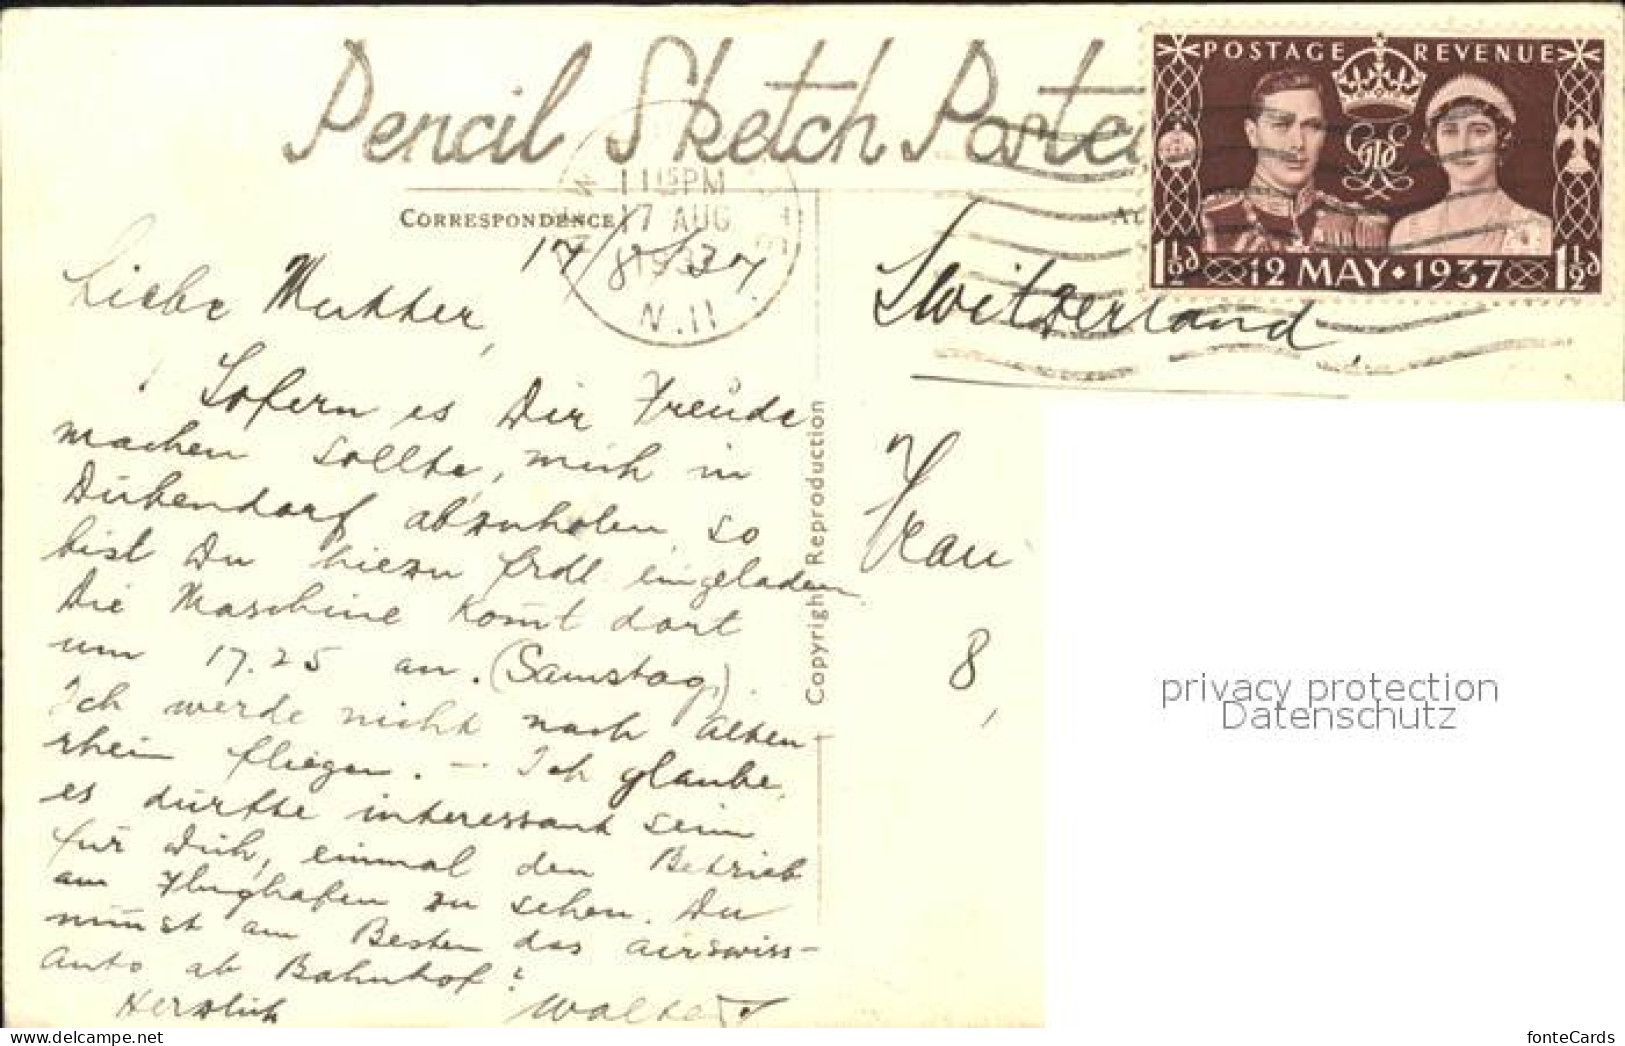 Pencil Sketch Postca
POSTAGE REVENUE
1½d 12 MAY • 1937 1½d
11 15 PM
17 AUG
1937
N.11
CORRESPONDENCE
17/8/37.
Liebe Mutter,
Sofern es Dir Freude
machen sollte, mich in
Dübendorf abzuholen, so
bist Du hiezu frdl. eingeladen.
Die Maschine kom̄t dort
um 17.25 an. (Samstag).
Ich werde nicht nach Alten-
rhein fliegen. - Ich glaube,
es dürfte interessant sein
für Dich, einmal den Betrieb
am Flughafen zu sehen. Du
nim̄st am Besten das airswiss-
Auto ab Bahnhof!
Herzlich Walter
Copyright Reproduction
Switzerland.
Frau
8,
privacy protection
Datenschutz
fonteCards